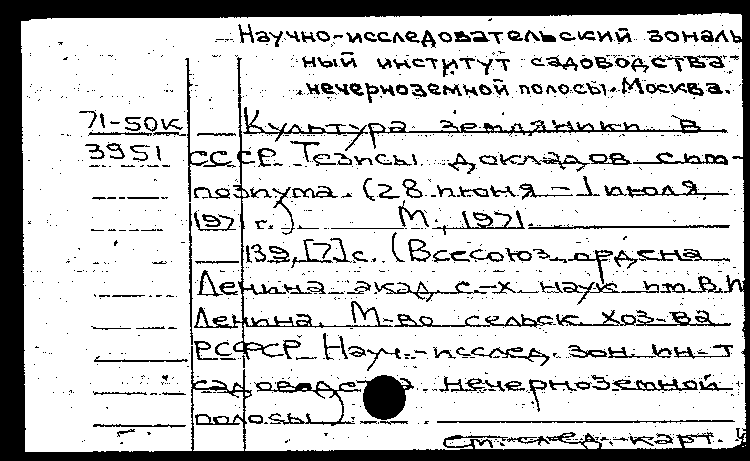 Научно-исследовательский зональ
ный институт садоводства
нечерноземной полосы. Москва.
71-50к Культура земляники в
3951 СССР Тезисы докладов сим-
позиума. (28 июня - 1 июля
1971 г.). М., 1971.
139, [7] с. (Всесоюз. ордена
Ленина акад. с.-х. наук им. В.И.
Ленина. М-во сельск. хоз-ва
РСФСР Науч.-исслед. зон. ин-т
садоводства нечерноземной
полосы)
См. след. карт.